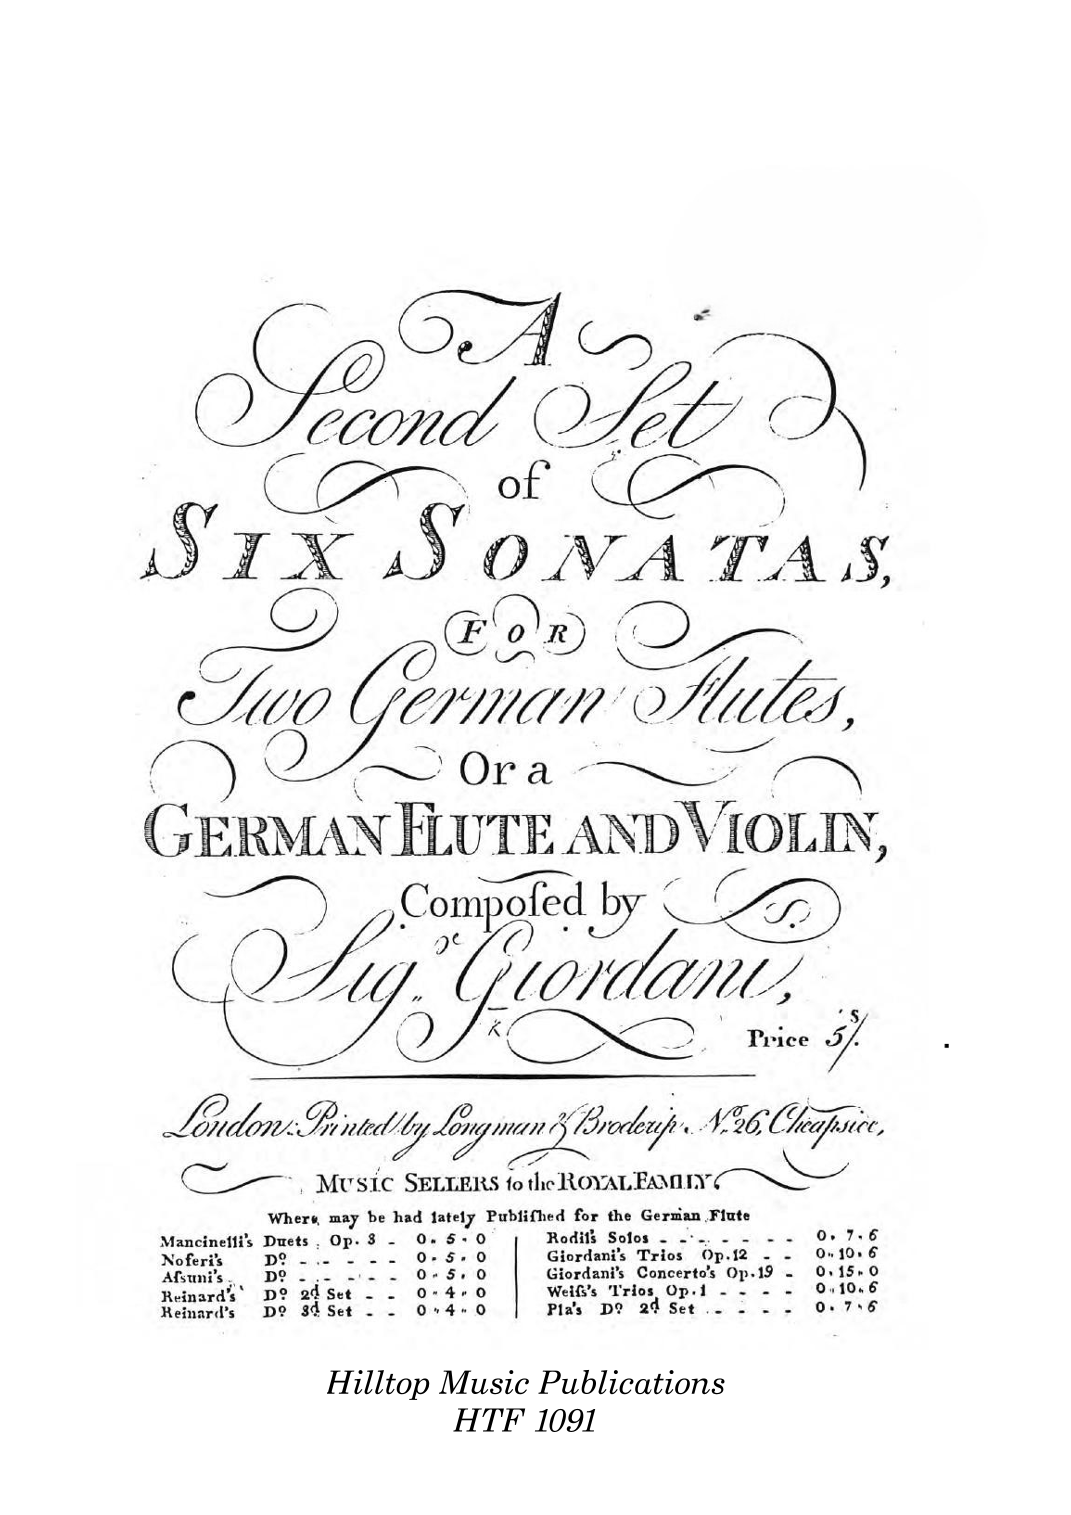 A
Second Set
of
SIX SONATAS,
FOR
Two German Flutes,
Or a
GERMAN FLUTE AND VIOLIN,
Compoſed by
Sigr. Giordani,
Price 5s/.
London: Printed by Longman & Broderip No. 26, Cheapside,
MUSIC SELLERS to the ROYAL FAMILY.
Where may be had lately Publiſhed for the German Flute
Mancinelli's Duets Op. 3 - 0 . 5 . 0
Noferi's Do. - - - - - 0 . 5 . 0
Aſsuni's Do. - - - - - 0 . 5 . 0
Reinard's Do. 2d Set - - 0 " 4 " 0
Reinard's Do. 3d Set - - 0 " 4 " 0
Rodil's Solos - - - - - - - 0 . 7 . 6
Giordani's Trios Op. 12 - - 0 " 10 . 6
Giordani's Concerto's Op. 19 - 0 . 15 . 0
Weiſs's Trios Op. 1 - - - - 0 " 10 . 6
Pla's Do. 2d Set - - - - 0 . 7 . 6
Hilltop Music Publications
HTF 1091